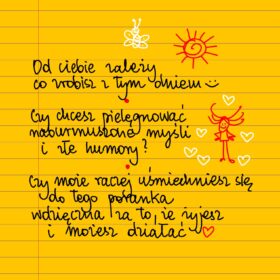 Od ciebie zależy
co zrobisz z tym dniem
Czy chcesz pielęgnować
naburmuszone myśli
i złe humory?
Czy może raczej uśmiechniesz się
do tego poranka
wdzięczna za to, że żyjesz
i możesz działać